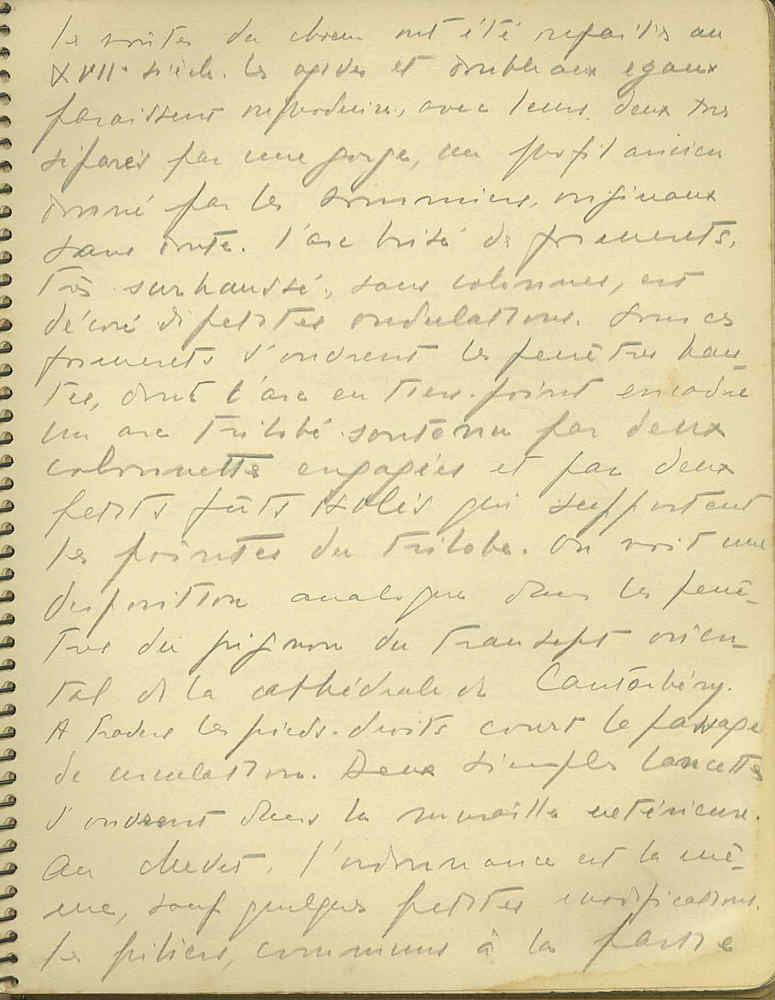 Les voûtes du chœur ont été refaites au
XVIIe siècle. Les ogives et doubleaux egaux
paraissent reproduire, avec leurs deux tores
séparés par une gorge, un profil ancien
donné par les sommiers, originaux
sans doute. l'arc brisé des formerets,
très surhaussé, sans colonnes, est
décoré de petites ondulations. Sous ces
formerets s'ouvrent les fenêtres hau
tes, dont l'arc en tiers-point encadre
un arc trilobé soutenu par deux
colonnettes engagées et par deux
petits fûts isolés qui supportent
les pointes du trilobe. On voit une
disposition analogue dans les fenê-
tres du pignon du transept orien-
tal de la cathédrale de Cantorbéry.
A travers les pieds-droits court le passage
de circulation. Deux simples lancettes
s'ouvrent dans la muraille extérieure.
Au chevet, l'ordonnance est la mê-
me, sauf quelques petites modifications.
Les piliers, communs à la partie